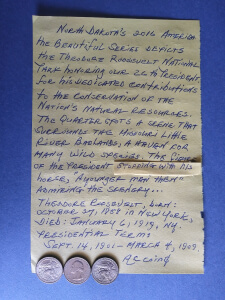 North Dakota's 2016 America
the Beautiful Series depicts
the Theodore Roosevelt National
Park honoring our 26th President
for his dedicated contributions
to the conservation of the
Nation's Natural Resources.
The Quarter a scene that
surrounds the Missouri Little
River Badlands, a haven for
many wild species. The
of the President with his
horse, a younger man then
admiring the scenery...
Theodore Roosevelt, Born:
October 27, 1858 in New York,
Died: January 6, 1919, NY.
Presidential Terms
Sept. 14, 1901 - March 4, 1909